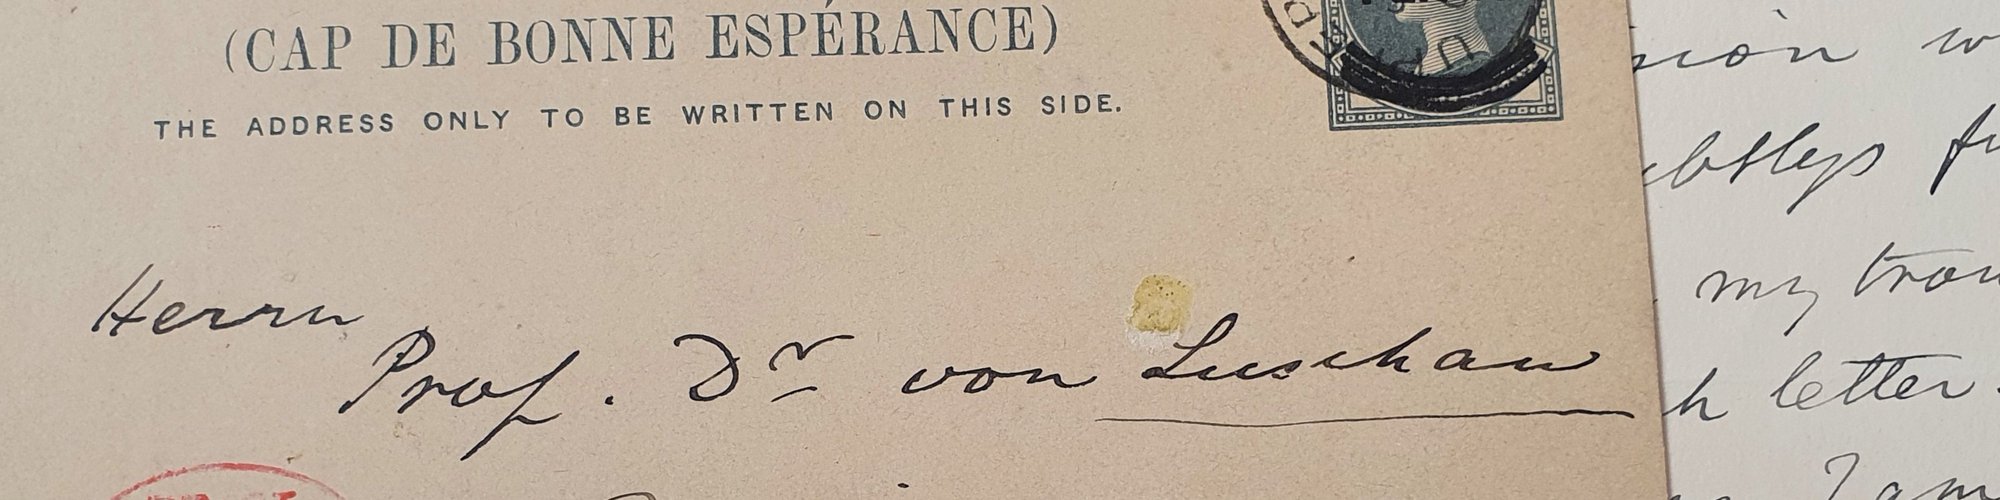 (CAP DE BONNE ESPÉRANCE)
THE ADDRESS ONLY TO BE WRITTEN ON THIS SIDE.
Herrn
Prof. Dr von Luschan
my
letter.
I am